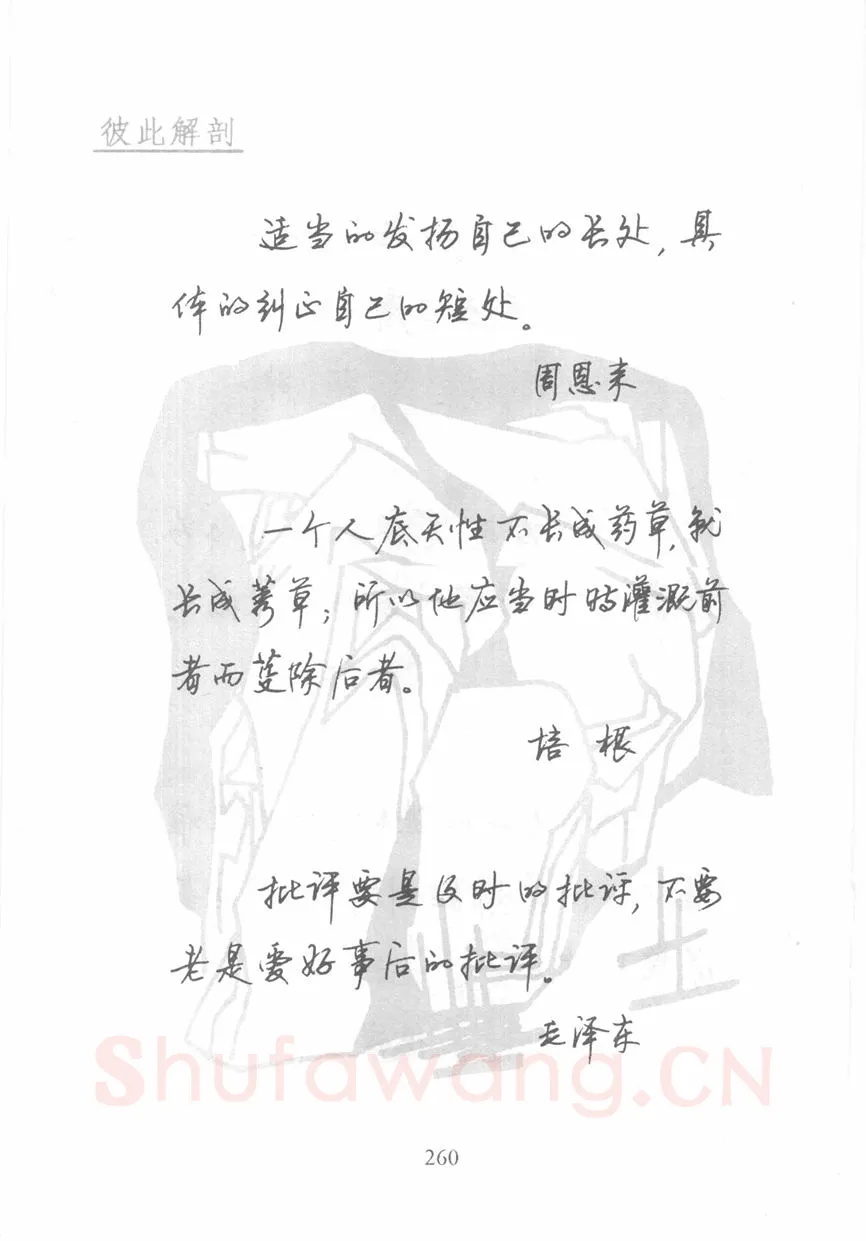 彼此解剖
适当的发扬自己的长处，具
体的纠正自己的短处。
周恩来
一个人底天性不长成药草，就
长成莠草；所以他应当时时灌溉前
者而芟除后者。
培根
批评要是及时的批评，不要
老是爱好事后的批评。
毛泽东
Shufawang.CN
260